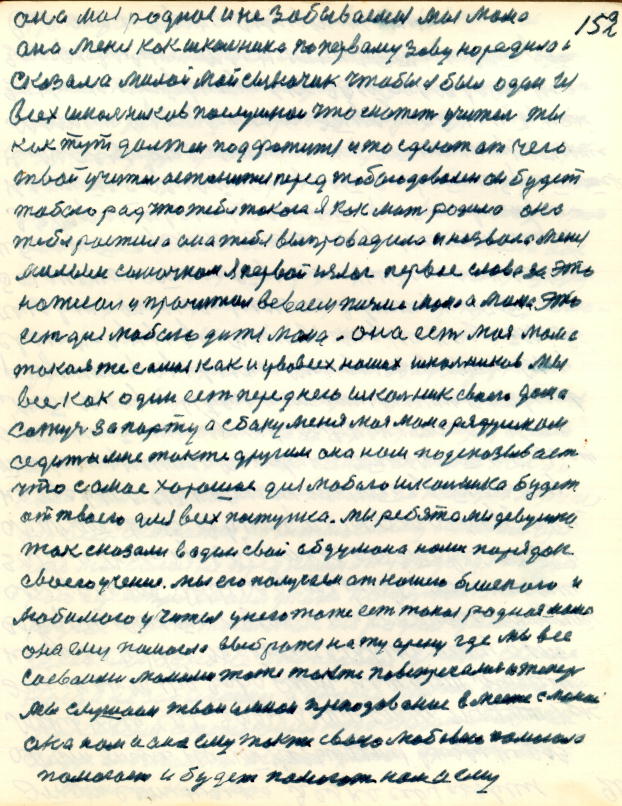 она моя родное и не забываемая моя мама
152
она меня как школьника по первому зову нарядила и
сказала милой мой сыночик чтобы я был один из
всех школьников послушной что скажет учител ты
как тут должен подфатит и то сделат от чего
твой учител останится перед тобою доволен он будет
тобою рад что тебя такога я как мат родила она
тебя растила она тебя выпровадила и назвала меня
милым сыночком я первой взялса первое слова за это
написал и прочитал
сет для любого дитя мама. она ест моя мама
такая же самая как и у всех наших школников мы
все как один ест переднего школник своего дома
сажус за парту а сбаку меня моя мама рядушком
седит и мне также другим она нам подсказывает
что самое хорошое для любого школника будет
от твоего для всех поступка. мы ребятами девушки
так сказали в один свой обдумана наш порядок
своего учения. мы его получаем от нашего близкого и
любимого учителя у него тоже ест такая родная мама
она ему помогла выбратся на ту арену где мы все
со своими мамами тоже также повстречалис и теперь
мы слушаем твои умной преподование вместе с мамой
она нам и она ему также своею любовю помогала
помогает и будет помогат нам и ему